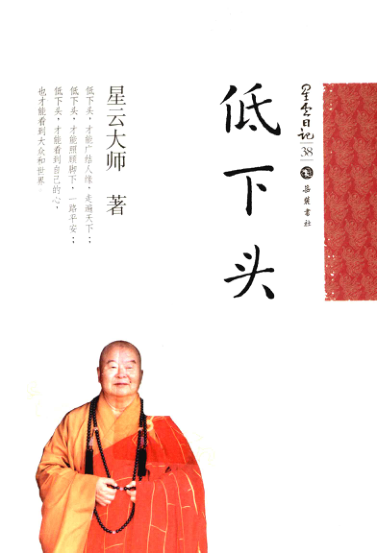 星云日记
38
岳麓书社
低下头
星云大师 著
低下头，才能广结人缘，走遍天下；
低下头，才能照顾脚下，一路平安；
低下头，才能看到自己的心，
也才能看到大众和世界。